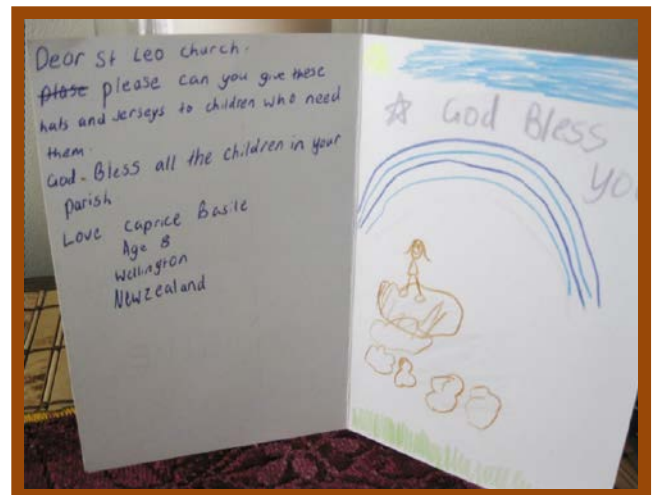 Dear St Leo church.
please please can you give these
hats and jerseys to children who need
them.
God-Bless all the children in your
parish
Love Caprice Basile
Age 8
Wellington
Newzealand
☆ God Bless